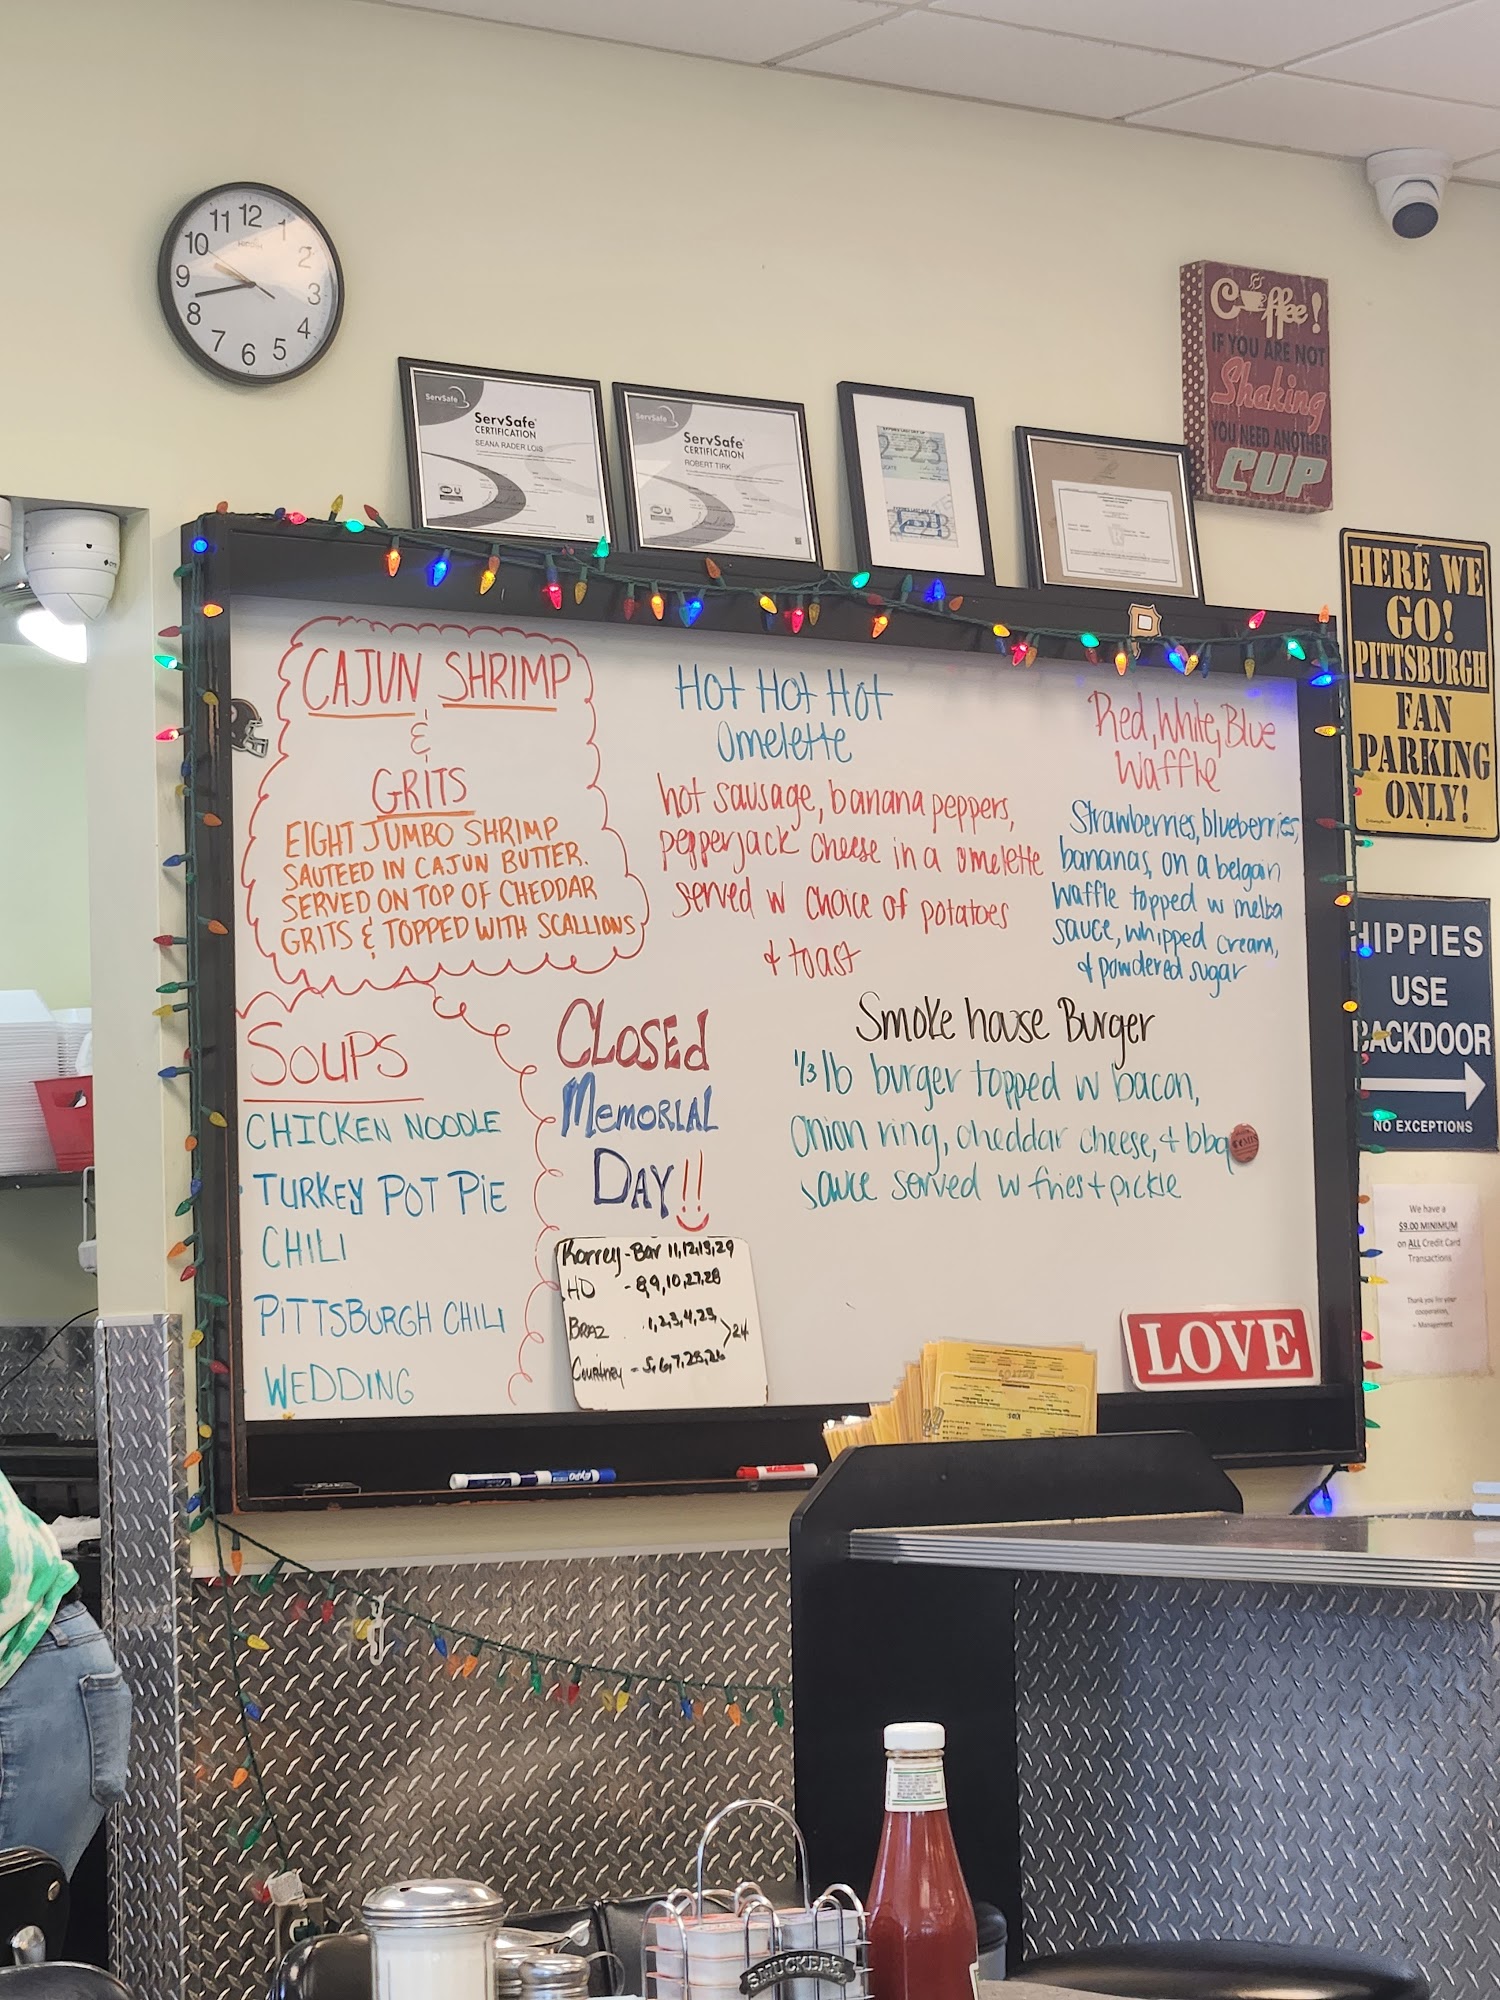 11 12 1
10 2
9 3
8 4
7 6 5
ServSafe
ServSafe
CERTIFICATION
SEANA RADER LOIS
ServSafe
ServSafe
CERTIFICATION
ROBERT TIRK
2-23
Coffee!
IF YOU ARE NOT
Shaking
YOU NEED ANOTHER
CUP
HERE WE
GO!
PITTSBURGH
FAN
PARKING
ONLY!
HIPPIES
USE
BACKDOOR
NO EXCEPTIONS
We have a
$9.00 MINIMUM
on ALL Credit Card
Transactions
Thank you for your
cooperation,
- Management
CAJUN SHRIMP
&
GRITS
EIGHT JUMBO SHRIMP
SAUTEED IN CAJUN BUTTER.
SERVED ON TOP OF CHEDDAR
GRITS & TOPPED WITH SCALLIONS
Hot Hot Hot
Omelette
hot sausage, banana peppers,
pepperjack cheese in a omelette
served w choice of potatoes
+ toast
Red, White, Blue
Waffle
Strawberries, blueberries,
bananas, on a belgain
waffle topped w melba
sauce, whipped cream,
+ powdered sugar
SOUPS
CHICKEN NOODLE
TURKEY POT PIE
CHILI
PITTSBURGH CHILI
WEDDING
CLOSED
MEMORIAL
DAY!!
Smoke house Burger
1/3 lb burger topped w bacon,
onion ring, cheddar cheese, + bbq
sauce served w fries + pickle
Korrey - Bar 11,12,13,29
HD - 8,9,10,27,28
BRAZ 1,2,3,4,23,
24
Courtney - 5,6,7,25,26
LOVE
KIDS
EXPO
SMUCKER'S